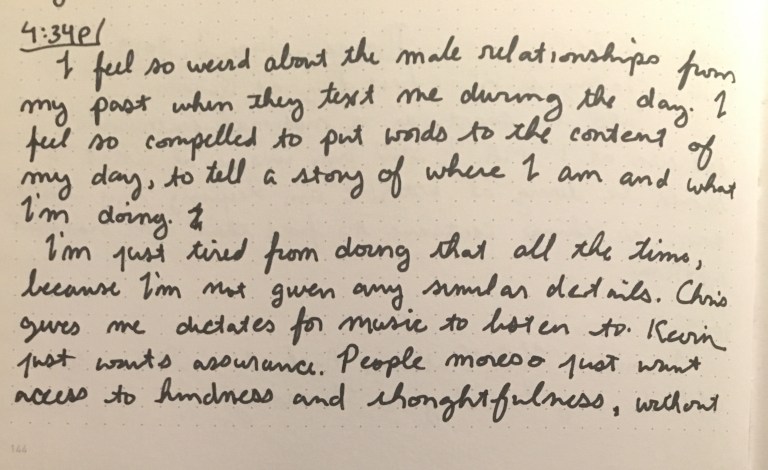 4:34p/
I feel so weird about the male relationships from
my past when they text me during the day. I
feel so compelled to put words to the content of
my day, to tell a story of where I am and what
I'm doing.
I'm just tired from doing that all the time,
because I'm not given any similar details. Chris
gives me dictates for music to listen to. Kevin
just wants assurance. People moreso just want
access to kindness and thoughtfulness, without
144